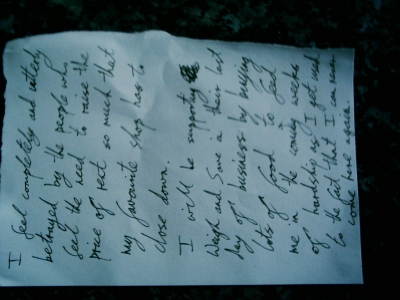 I feel completely and utterly
betrayed by the people who
feel the need to raise the
price of rent so much that
my favourite shop has to
close down.
I will be supporting
Weigh and Save on their last
day of business by buying
lots of food to feed
me in the coming weeks
of hardship as I get used
to the fact that I can never
come here again.